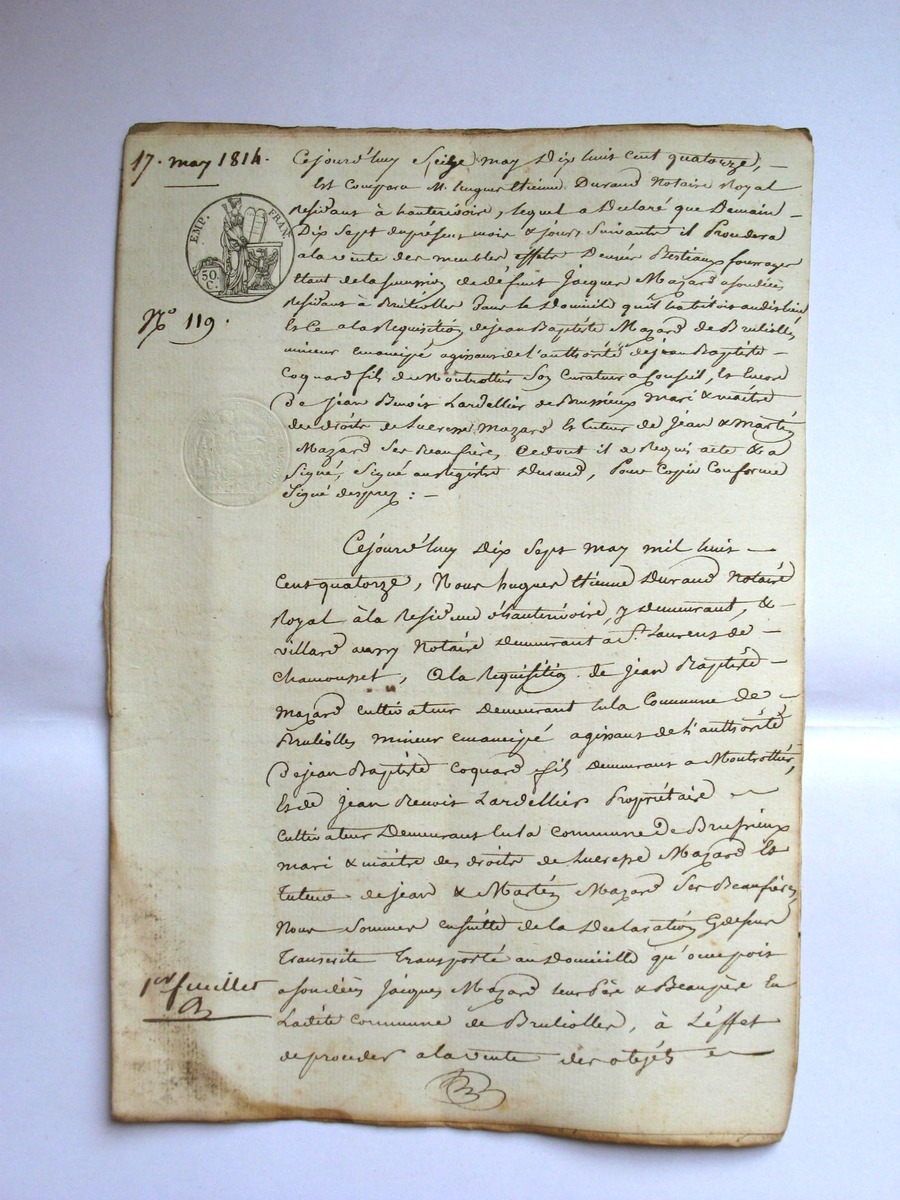 17. may 1814.
EMP. FRAN.
50. C.
No 119.
Cejourd'huy Seize may Dix huit cent quatorze, —
Est Comparu Me hugues Etienne Durand Notaire Royal
Residant à hauterivoire, lequel a Declaré que Demain —
Dix Sept du présent mois & jours Suivants il Procedera
a la vente des meubles effets Denrées Bestiaux fourrages
Etant de la Succession de défunt Jacques Mazard
Residant à Brullioles dans le Domicile qu'il habitoit audit lieu
Et Ce a la Requisition de jean Baptiste Mazard de Bruliolles
mineur emancipé agissant de l'authorité de jean Baptiste —
Coquard fils de Montrottier Son Curateur a Conseil, Et Encore
De jean Benoit Lardellier de Brussieux mari & maitre
des droits de Lucresse Mazard Et tuteur de jean & Martin
Mazard Ses Beaufrères, De dont il a Requi acte & a
Signé, Signé au registre Durand, Pour Copie Conforme
Signé despres : —
Cejourd'huy Dix Sept may mil huit —
Cent quatorze, Nous hugues Etienne Durand Notaire
Royal à la Residence d'hauterivoire, y demeurant, & —
villard aussy Notaire Demeurant a St Laurent de —
Chamousset, a la Requisition de jean Baptiste —
Mazard Cultivateur Demeurant En la Commune de —
Bruliolles mineur emancipé agissant de l'authorité
De jean Baptiste Coquard fils demeurant a Montrottier,
Et de jean Benoit Lardellier Propriétaire —
Cultivateur Demeurant En la Commune de Brussieux
mari & maitre des droits de Lucresse Mazard Et
Tuteur de jean & Martin Mazard Ses Beaufrères,
Nous Sommes ensuitte de la Declaration Cydessus
Transcrite Transporté au Domicile qu'occupoit
Jacques Mazard leur Père & Beaupère En
Ladite Commune de Bruliolles, à L'effet
de proceder a la vente des objets —
1er feuillet